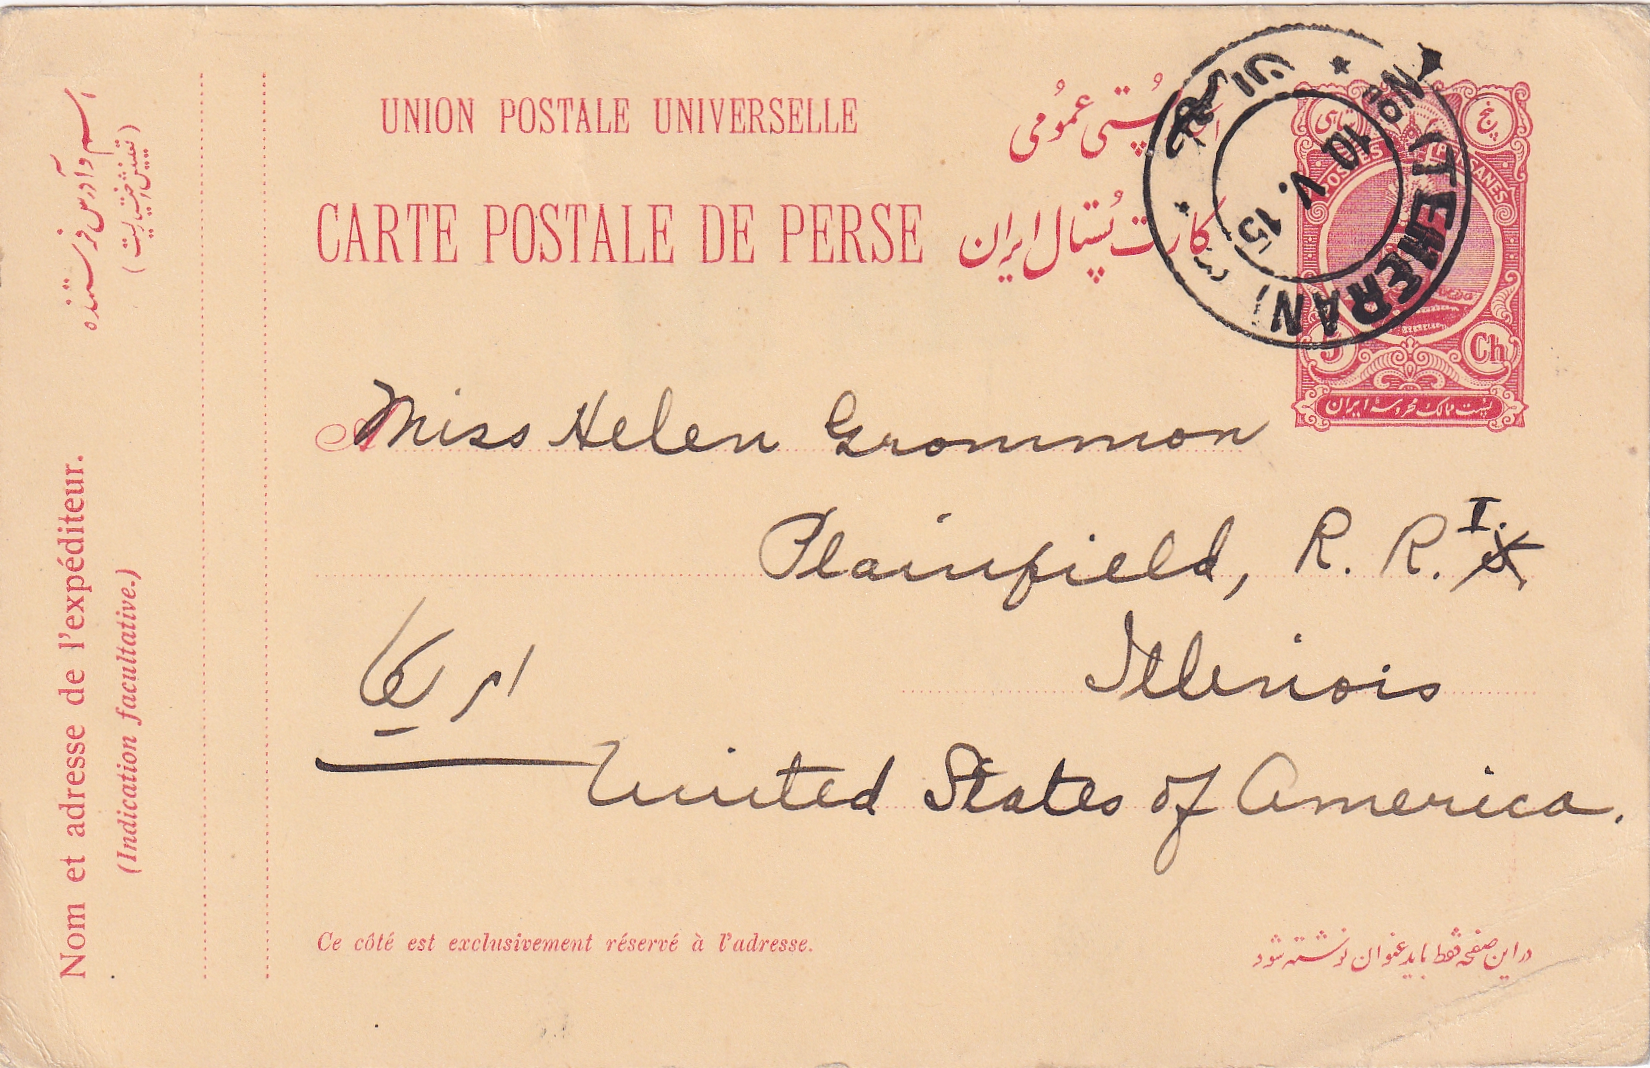 UNION POSTALE UNIVERSELLE
پُستی عمُومی
CARTE POSTALE DE PERSE
کارت پُستال ایران
اسم و آدرس فرستنده
(تعیینش اختیاریست)
Nom et adresse de l'expéditeur.
(Indication facultative.)
No (TEHERAN)
10 V. 15
شاهی
پنج
POSTES PERSANES
5 Ch
پست ممالک محروسه ایران
A Miss Helen Grommon
Plainfield, R. R. I.
Illinois
امریکا
United States of America.
Ce côté est exclusivement réservé à l'adresse.
در این صفحه فقط باید عنوان نوشته شود